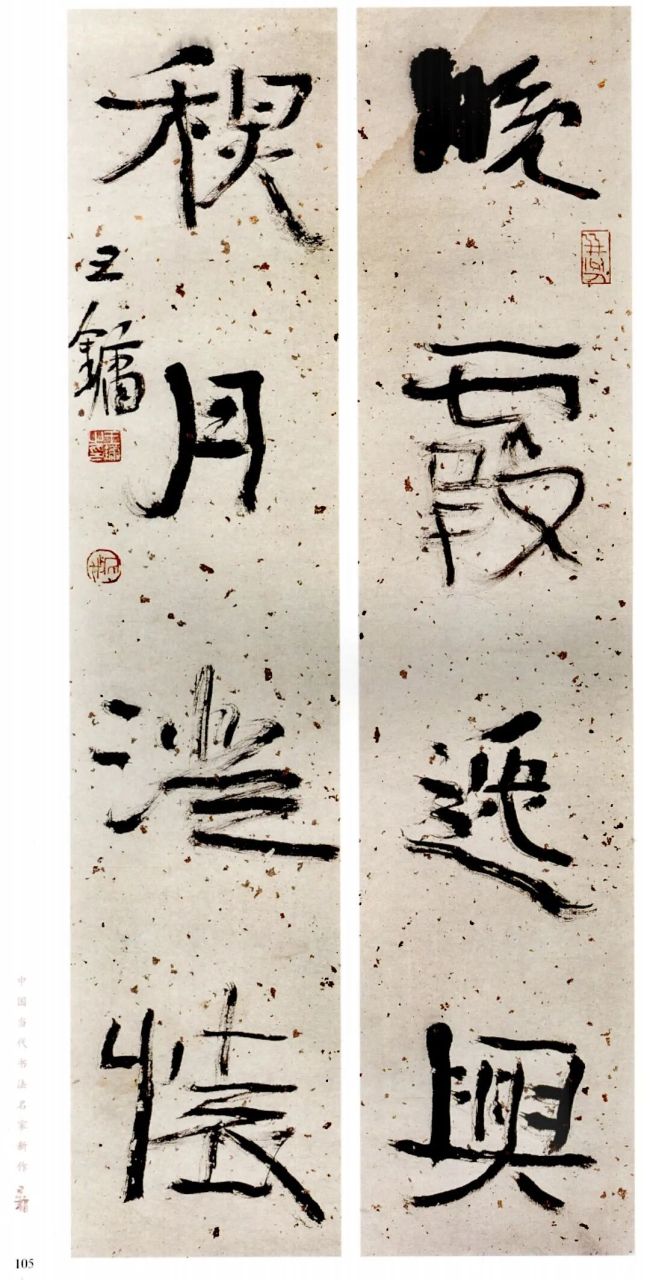 晚霞逸興
月澄懷
王鏞
中国当代书法名家新作
王镛
105